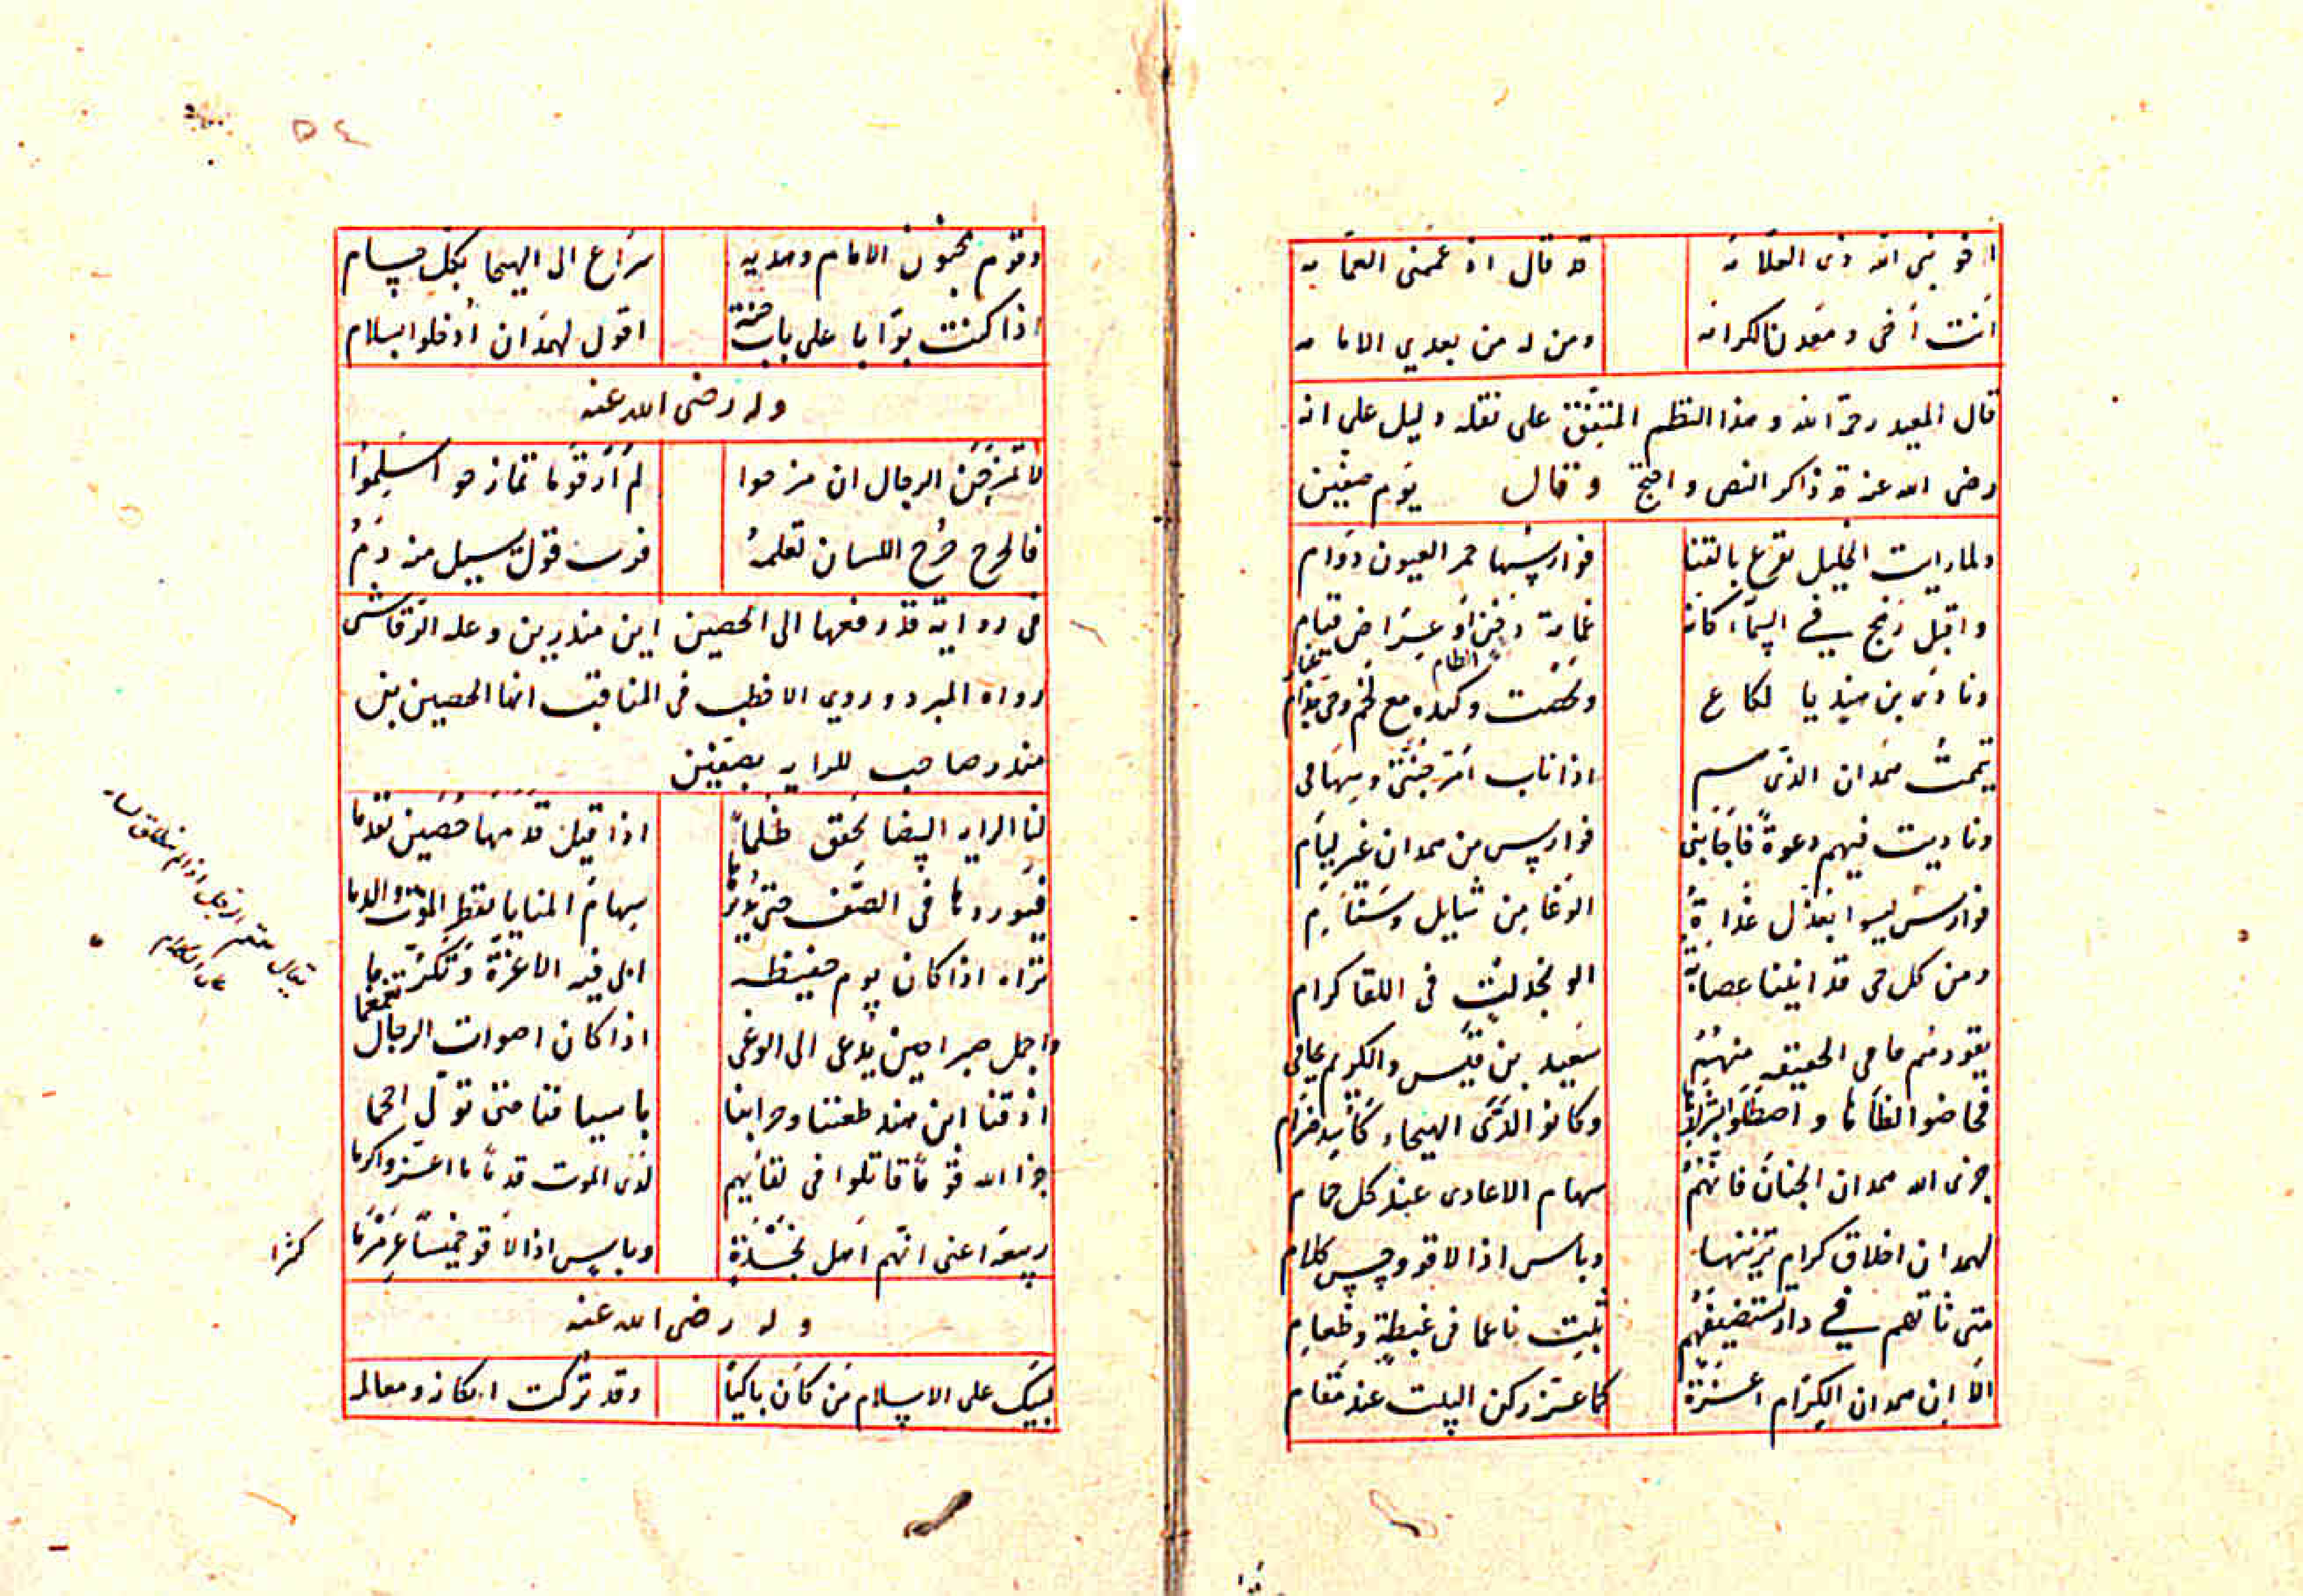 اخو نبي الله ذى العلامه قد قال اذ عممنى العمامه
انت اخى ومعدن الكرامه ومن له من بعدي الامامه
قال المعيد رحمة الله وهذا النظم المتفق على نقله دليل على انه
رضى الله عنه قد ذاكر النص واحتج وقال يوم صفين
ولما رايت الخيل تقرع بالقنا فوارسها حمر العيون دوام
واقبل رهج في السماء كانه غمامة دجن او عراض قتام
ونادى بن هند يا لكاع وكنده مع لخم وحى جذام
تيممت همدان الذى هم اذا ناب امر جنتى وسهامى
وناديت فيهم دعوة فاجابنى فوارس من همدان غير ليام
فوارس ليسوا بعذل غداة الوغا من شايل وشتام
ومن كل حى قد اتتنا عصابة الو نجد ليث فى اللقا كرام
يقودهم حامى الحقيقه منهم سعيد بن قيس والكريم يحامى
فخاضوا لظاها واصطلوا بشرارها وكانوا لدى الهيجاء كاسد ضرام
جزى الله همدان الجنان فانهم سهام الاعادى عند كل حمام
لهمدان اخلاق كرام تزينها وباس اذا لاقو وحسن كلام
متى تاتهم في دار تستضيفهم تبت ناعما فى غبطة وطعام
الا ان همدان الكرام اعزة كما عز ركن البيت عند مقام
٥٤
وقوم يحبون الامام وهديه سراع الى الهيجا بكل حسام
اذا كنت بوابا على باب جنة اقول لهمدان ادخلوا بسلام
وله رضى الله عنه
لا تمزحن الرجال ان مزحوا لم ار قوما تمازحو اسلموا
فالجرح جرح اللسان تعلمه فرب قول يسيل منه دم
فى رواية قد رفعها الى الحصين ابن منذر بن وعله الرقاشى
رواه المبرد وروي الاخطب فى المناقب انما الحصين بن
منذر صاحب للرايه بصفين
لنا الرايه البيضا يخفق ظلها اذا قيل قدمها حصين تقدما
فيوردها فى الصف حتى يزيرها سهام المنايا تقطر الموت والدما
تراه اذا كان يوم حفيظه ابى فيه الا عزة وتكرما
واجمل صبرا حين يدعى الى الوغى اذا كان اصوات الرجال تغمغما
اذقنا ابن هند طعننا وضرابنا باسيافنا حتى تولى احجما
جزا الله قوما قاتلوا فى لقايهم لدى الموت قدما ما اعز واكرما
ربيعة اعنى انهم اهل نجدة وباس اذا لاقو خميسا عرمرما
وله رضى الله عنه
لبيك على الاسلام من كان باكيا وقد تركت اركانه ومعالمه